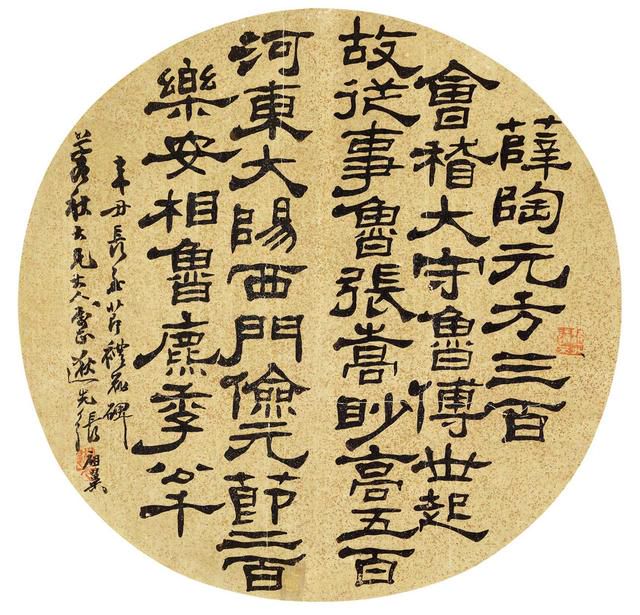 薛陶元方三百
會稽大守魯傅世起
故從事魯張嵩眇高五百
河東大陽西門儉元節二百
樂安相魯麃季公千
辛丑長禮器碑
秋大兄大人正逖先張祖翼